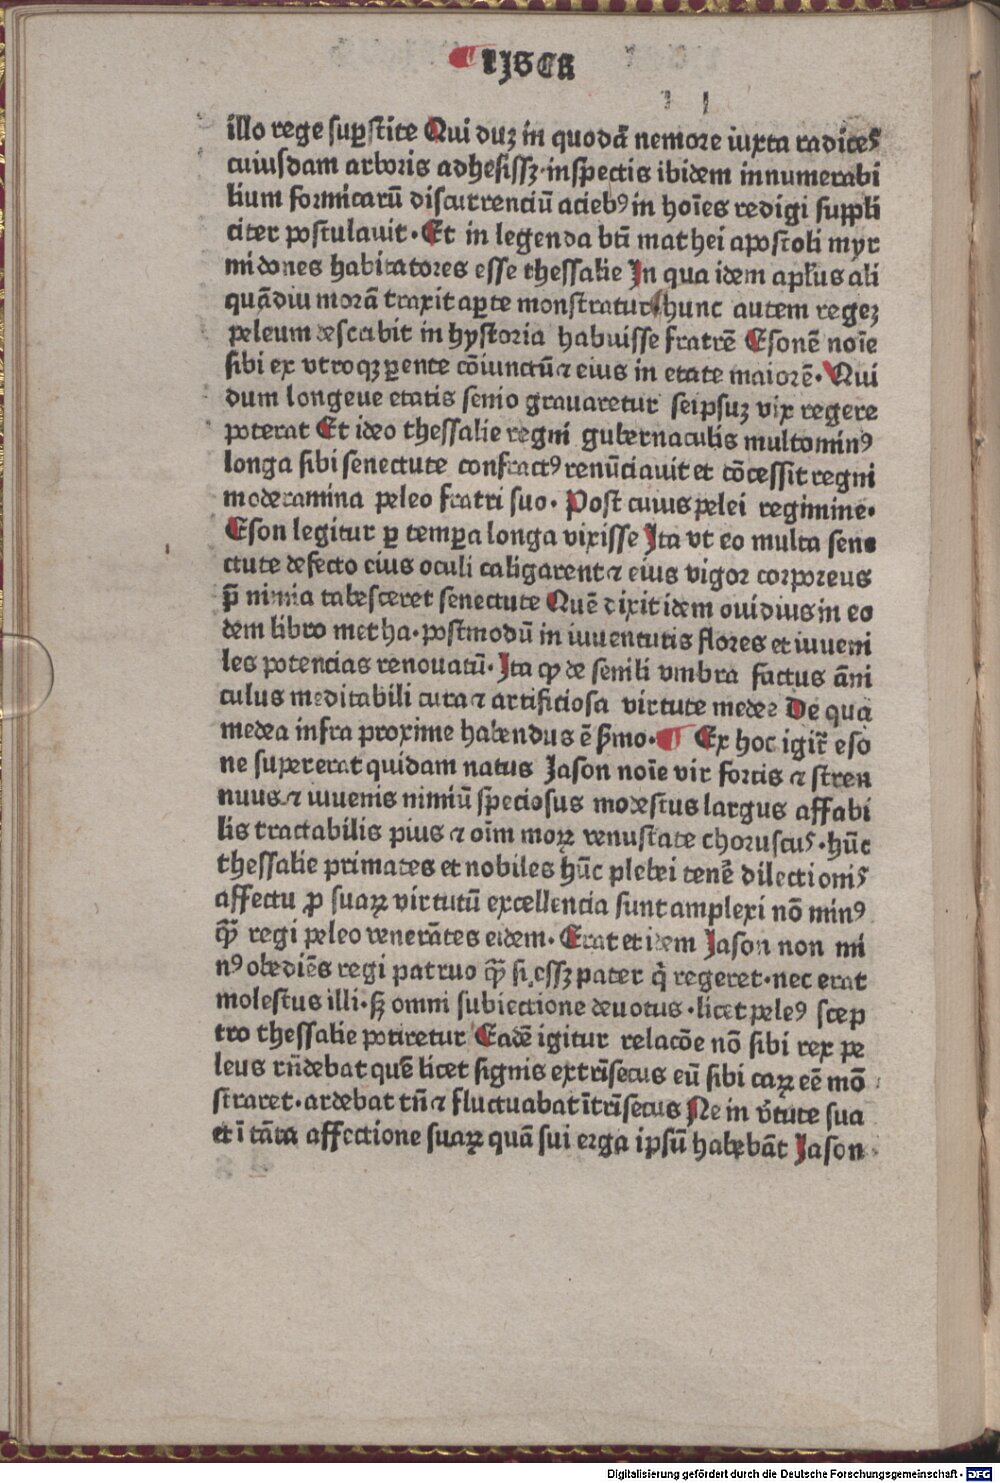 ¶ LIBER
illo rege suꝑstite Qui duꝫ in quodā nemore iuxta radices
cuiusdam arboris adhesissꝫ·inspectis ibidem innumerabi
lium formicarū discurrenciū aciebꝰ in hoīes redigi suppli
citer postulauit· Et in legenda bti mathei apostoli myr
midones habitatores esse thessalie In qua idem aplus ali
quādiu morā traxit aꝑte monstratur hunc autem regeꝫ
peleum describit in hystoria habuisse fratrē Esonē noīe
sibi ex vtroqꝫ ꝑente cōiunctū ⁊ eius in etate maiorē· Qui
dum longeue etatis senio grauaretur seipsuꝫ vix regere
poterat Et ideo thessalie regni gubernaculis multominꝰ
longa sibi senectute confractꝰ renūciauit et cōcessit regni
moderamina peleo fratri suo· Post cuius pelei regimine·
Eson legitur ꝑ temꝑa longa vixisse Ita vt eo multa sene
ctute defecto eius oculi caligarent ⁊ eius vigor corporeus
p̄ nimia tabesceret senectute Quē dixit idem ouidius in eo
dem libro metha· postmodū in iuuentutis flores et iuueni
les potencias renouatū· Ita ꝙ de senili vmbra factus āni
culus meditabili cura ⁊ artificiosa virtute medee De qua
medea infra proxime habendus ē ẜmo· ¶ Ex hoc igit̄ eso
ne supererat quidam natus Jason noīe vir fortis ⁊ stren
nuus ⁊ iuuenis nimiū speciosus modestus largus affabi
lis tractabilis pius ⁊ oīm moꝝ venustate choruscus· hūc
thessalie primates et nobiles hūc plebei tenē dilectionis
affectu ꝓ suaꝝ virtutū excellencia sunt amplexi nō minꝰ
qꝫ̄ regi peleo venerātes eidem· Erat et idem Jason non mi
nꝰ obediēs regi patruo qꝫ̄ si essꝫ pater q̇ regeret· nec erat
molestus illi· sꝫ omni subiectione deuotus · licet peleꝰ scep
tro thessalie potiretur Eadē igitur relacōe nō sibi rex pe
leus rn̄debat quē licet signis extrīsecus eū sibi caꝝ eē mō
straret· ardebat tn̄ ⁊ fluctuabat ītrīsecus Ne in v̄tute sua
et ī tāta affectione suaꝝ quā sui erga ipsū habebāt Jason
Digitalisierung gefördert durch die Deutsche Forschungsgemeinschaft · DFG